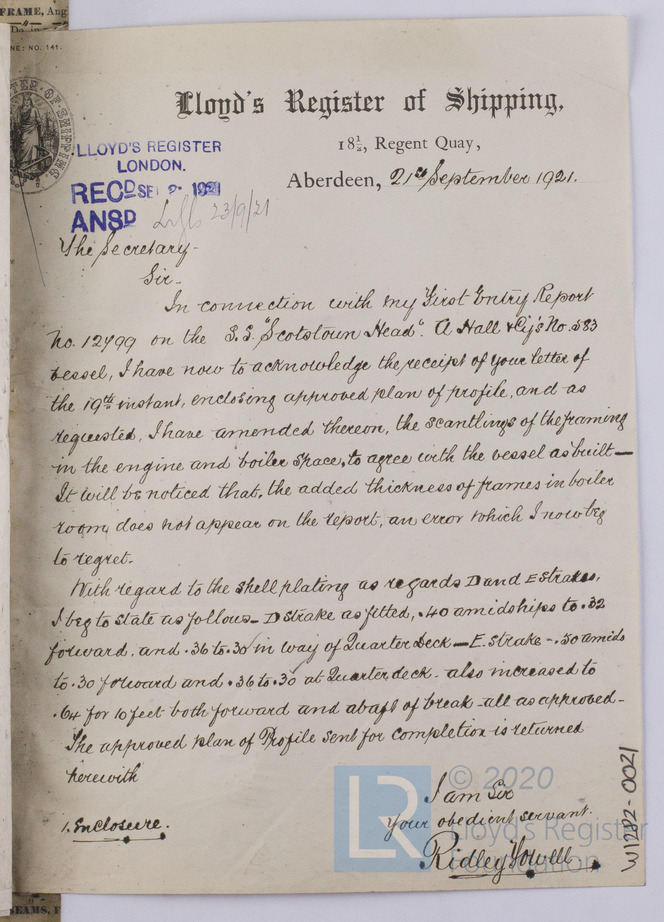 FRAME, Ang
NE: NO. 141.
Lloyd's Register of Shipping,
18½, Regent Quay,
Aberdeen, 21st September 1921.
LLOYD'S REGISTER
LONDON.
RECD SEP 2 1921
ANSD 23/9/21
The Secretary-
Sir-
In connection with my First Entry Report
No. 12499 on the S.S. "Scotstoun Head". A Hall & Coy's No. 583
vessel, I have now to acknowledge the receipt of your letter of
the 19th instant, enclosing approved plan of profile, and as
requested, I have amended thereon, the scantlings of the framing
in the engine and boiler space, to agree with the vessel as built—
It will be noticed that, the added thickness of frames in boiler
room, does not appear on the report, an error which I now beg
to regret.
With regard to the shell plating as regards D and E strakes,
I beg to state as follows— D strake as fitted, .40 amidships to .32
forward, and .36 to .30 in way of Quarter Deck — E. strake - .50 amids
to .30 forward and .36 to .30 at Quarter deck - also increased to
.64 for 10 feet both forward and abaft of break - all as approved-
The approved plan of Profile sent for completion is returned
herewith
I am Sir
Your obedient servant.
1. Enclosure.
Ridley Howell
W1202-0021
LR
© 2020
Lloyd's Register
Foundation
SEAMS, F